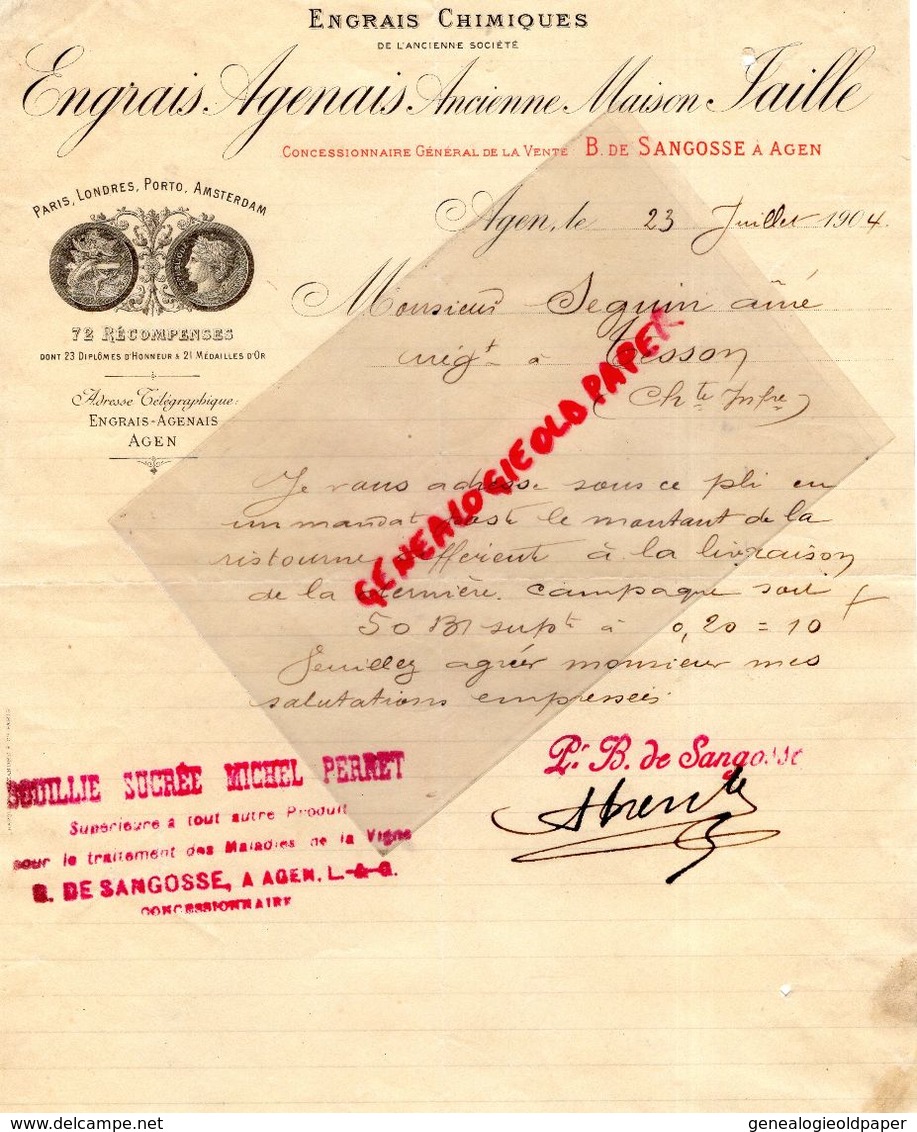 ENGRAIS CHIMIQUES
DE L'ANCIENNE SOCIÉTÉ
Engrais Agenais Ancienne Maison Jaille
CONCESSIONNAIRE GÉNÉRAL DE LA VENTE: B. DE SANGOSSE À AGEN
PARIS, LONDRES, PORTO, AMSTERDAM
72 RÉCOMPENSES
DONT 23 DIPLÔMES D'HONNEUR & 21 MÉDAILLES D'OR
Adresse Télégraphique:
ENGRAIS-AGENAIS
AGEN
Agen, le 23 Juillet 1904.
Monsieur Seguin aîné
négt à Tesson
(Chte Infre)
Je vous adresse sous ce pli en
un mandat poste le montant de la
ristourne afférent à la livraison
de la dernière campagne soit
50 Bl supte à 0,20 = 10 f
Veuillez agréer monsieur mes
salutations empressées
Pr. B. de Sangosse
BOUILLIE SUCRÉE MICHEL PERRET
Supérieure à tout autre Produit
pour le traitement des Maladies de la Vigne
B. DE SANGOSSE, A AGEN, L.-&-G.
CONCESSIONNAIRE
GENEALOGIEOLD PAPER
www.delcampe.net
genealogieoldpaper